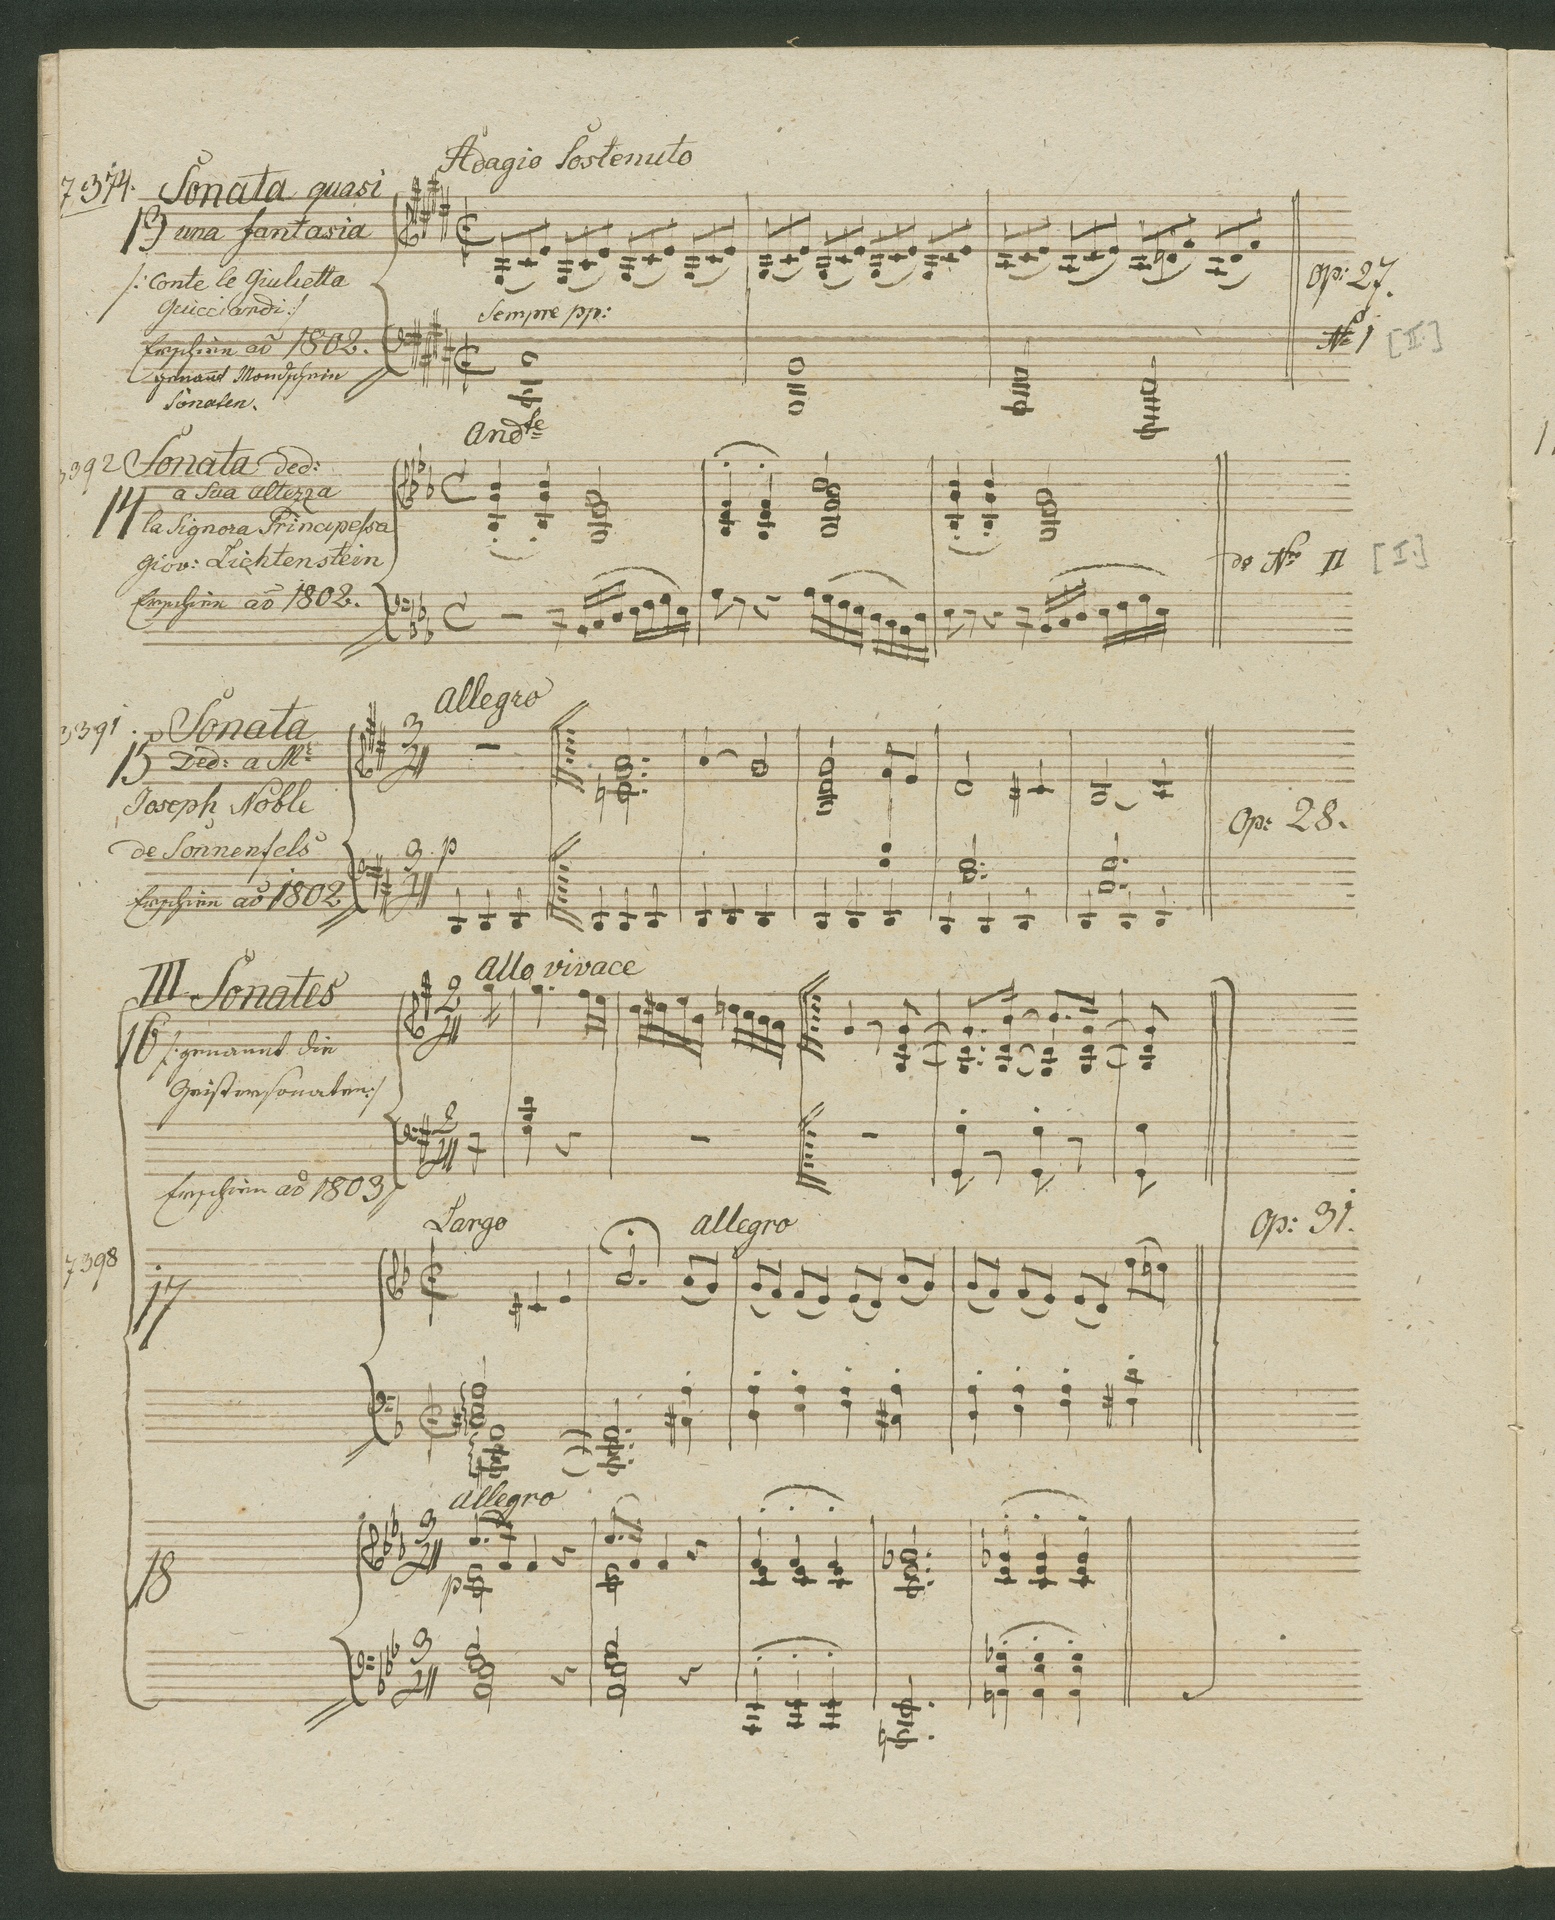 Adagio Sostenuto
7374. Sonata quasi
13 una fantasia
/: Conte le Giulietta
Guicciardi :/
Erschien aō 1802.
genant Mondschein
Sonaten.
Sempre pp:
Op: 27.
Nº 1 [II.]
And.te
3392 Sonata ded:
14 a Sua altezza
la Signora Principessa
giov: Lichtenstein
Erschien aō 1802.
do Nro II [I.]
Allegro
3391. Sonata
15 Ded: a Mr
Joseph Noble
de Sonnenfels
Erschien aō 1802
p
Op: 28.
Allo vivace
III Sonates
16 /: genannt die
Geistersonaten :/
Erschien aō 1803
Largo allegro
Op: 31.
7398
17
allegro
18
p